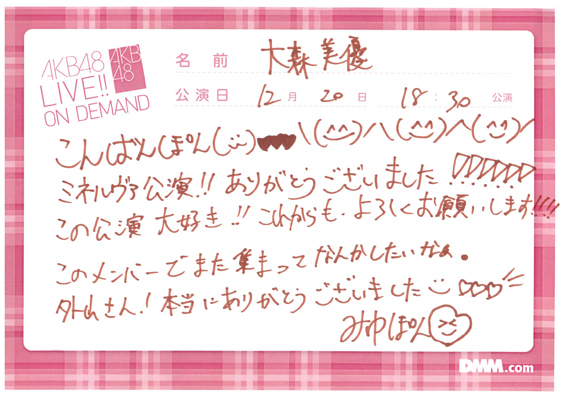 AKB48
LIVE!!
ON DEMAND
AKB
48
名前 大森美優
公演日 12月 20日 18:30 公演
こんばんぽん(¨)♥♥\(^^)/\(^^)/\(^^)/
ミネルヴァ公演!! ありがとうございました!!!!!!
この公演 大好き!! これからも、よろしくお願いします!!!!
このメンバーでまた集まって なんかしたいなぁ。
外山さん! 本当にありがとうございました¨ ♡♡♡
みゆぽん
DMM.com